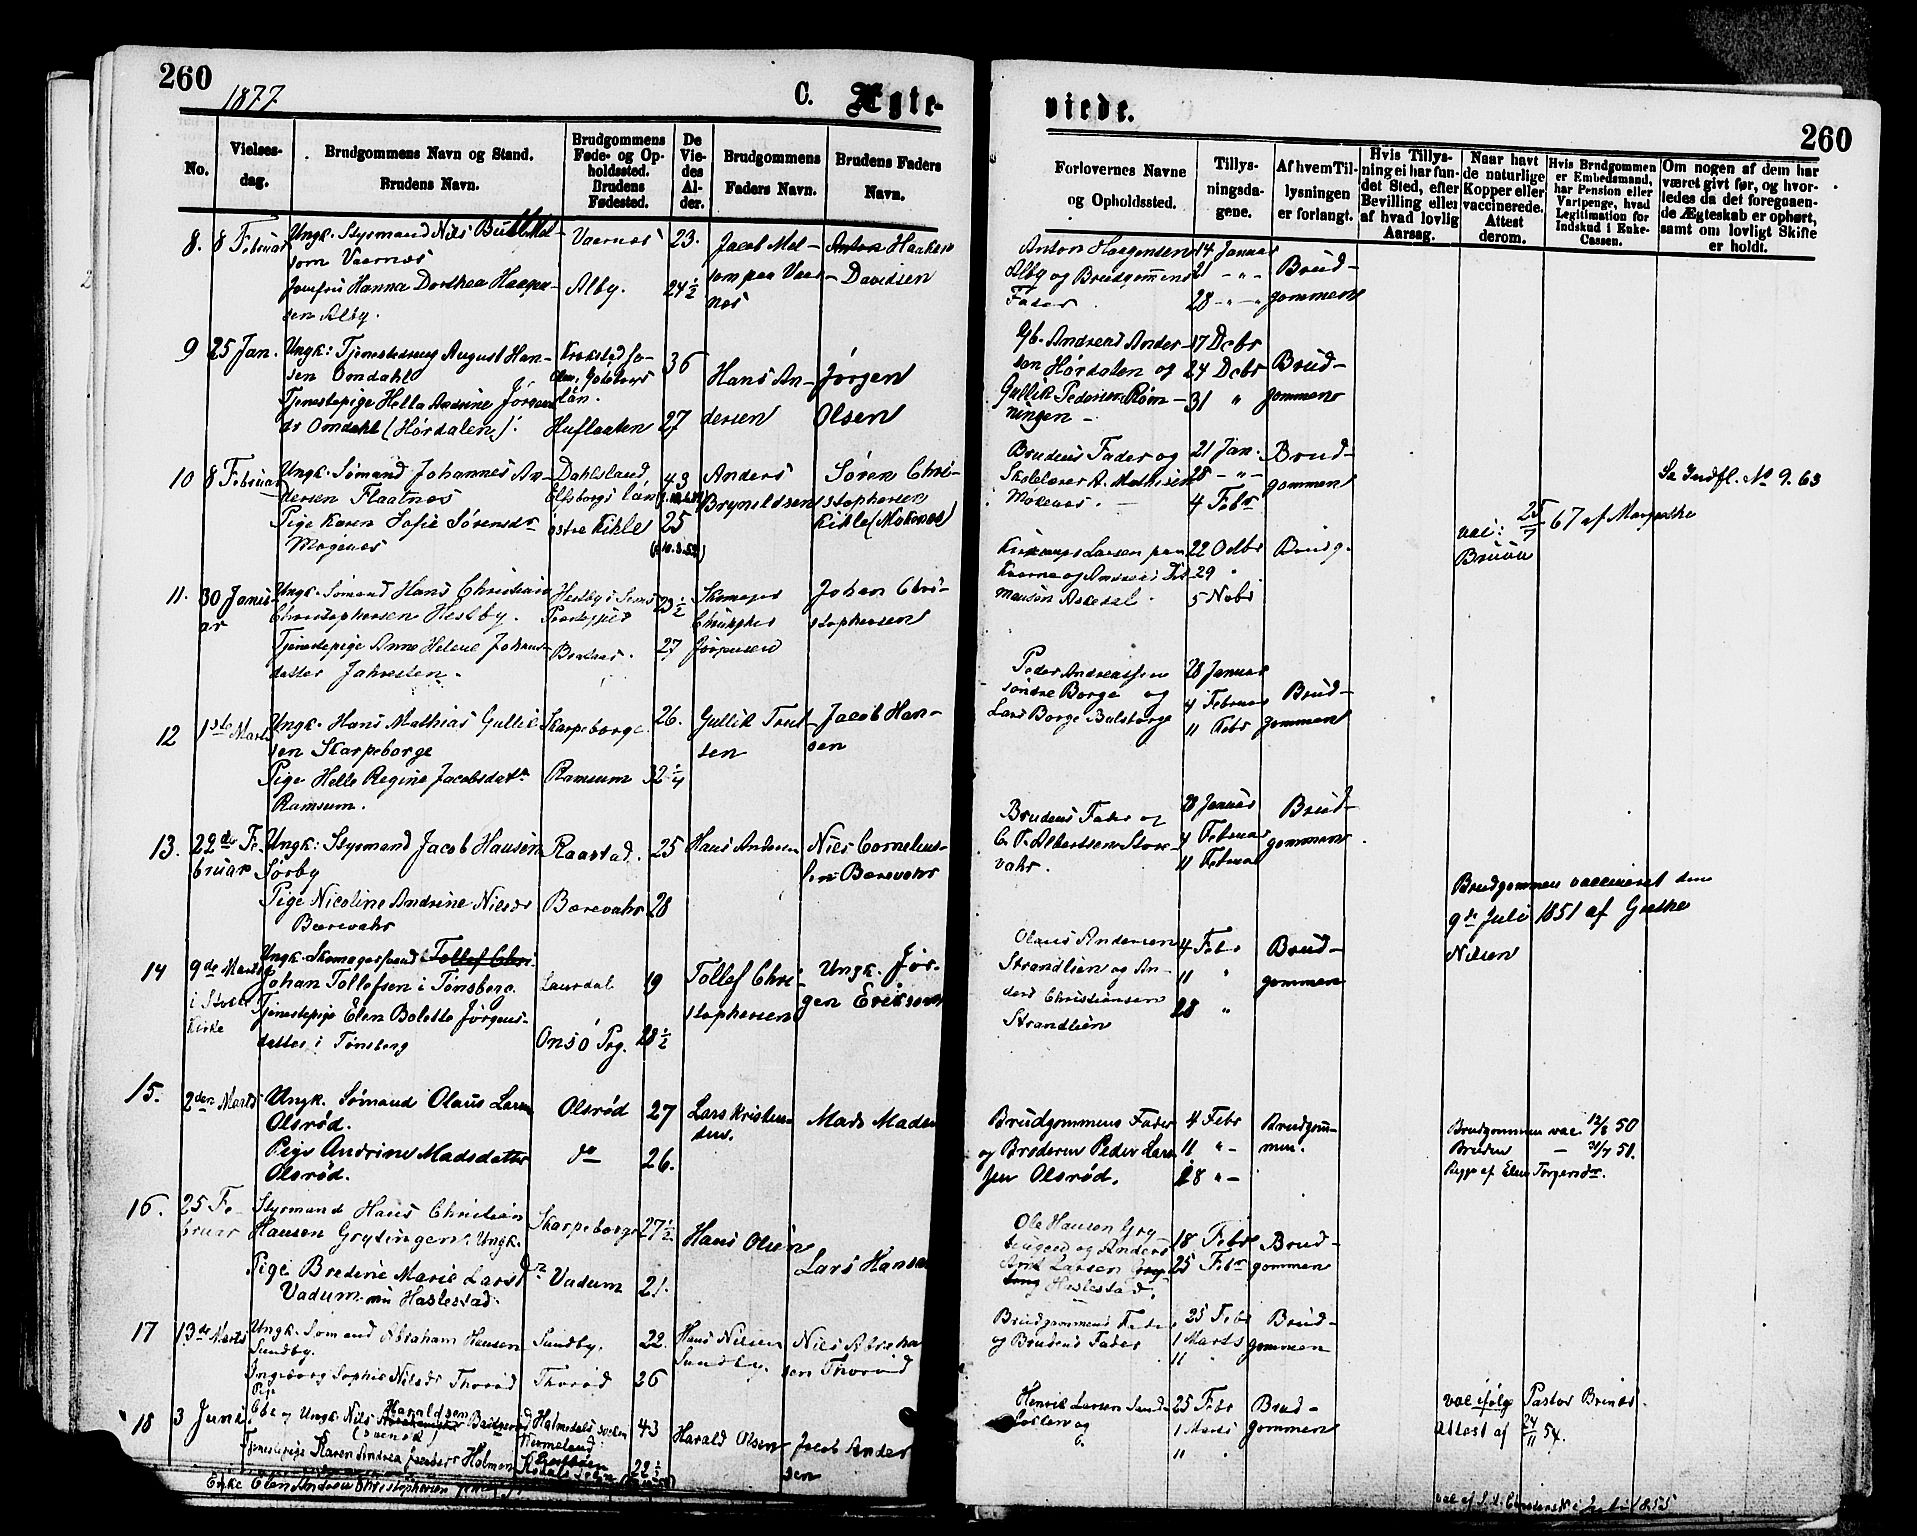 260
1877
C. Ægte-
viede.
260
No.
Vielses-
dag.
Brudgommens Navn og Stand.
Brudens Navn.
Brudgommens
Føde- og Op-
holdssted.
Brudens
Fødested.
De
Vie-
des
Al-
der.
Brudgommens
Faders Navn.
Brudens Faders
Navn.
Forlovernes Navne
og Opholdssted.
Tillys-
ningsda-
gene.
Af hvem Til-
lysningen
er forlangt.
Hvis Tillys-
ning ei har fun-
det Sted, efter
Bevilling eller
af hvad lovlig
Aarsag.
Naar havt
de naturlige
Kopper eller
vaccinerede.
Attest
derom.
Hvis Brudgommen
er Embedsmand,
har Pension eller
Vartpenge, hvad
Legitimation for
Indskud i Enke-
Cassen.
Om nogen af dem har
været givt før, og hvor-
ledes da det foregaaen-
de Ægteskab er ophørt,
samt om lovligt Skifte
er holdt.
8. 8 Februar
Ungk. Styrmand Nils
som Vaernes
Jomfru Hanna Dorthea Haagen-
sen Alby.
Vaernes
Alby.
23.
24½
Jacob Mel-
som paa Vaer-
nes
Davidsen
Anton Haagensen
Alby og Brudgommens
Fader
14 Januar
21 " "
28 " "
Brud-
gommen
9 25 Jan.
Ungk: Tjenestedreng August Han-
sen Omdahl
Tjenestepige Helle Andrine Jørgens-
dr Omdahl (Hørdalen).
Län.
36
27
Hans An-
dersen
Jørgen
Olsen
Gb. Andreas Ander-
sen Hørdalen og
Gullik Pedersen Røm-
ningen -
17 Decbr
24 Decbr
31 "
Brud-
gommen
10 8 Februar
Ungk. Sømand Johannes An-
dersen Flaatnes
Pige Karen Sofie Sørensdr
Dahlsland
Elfsborgs Län
østre Kikle
43
25
Anders
Brynildsen
Søren Chri-
stophersen
Kikle (Moknes)
Brudens Fader og
Skolelærer A. Mathisen
21 Jan.
28 " "
4 Febr
Brud-
gommen
Se Indfl. No 9. 63
11. 30 Janu-
ar
Ungk. Sømand Hans Christian
Christophersen Hesby.
Tjenestepige Anne Helene Johans-
datter Jahresten.
Hesby i Sems
Præstegjeld
29½
27
Skomager
Jørgensen
Johan Chri-
stophersen
22 Octbr
29 "
5 Novbr
Brudg.
vac: 25/7 67 af Margrethe
Bruun
12 1ste Marts
Ungk. Hans Mathias Gullik-
sen Skarpeborge
Pige Helle Regine Jacobsdatr
Ramsum.
Skarpeborge
Ramsum
26.
32¼
Gullik Trul-
sen
Jacob Han-
sen
Peder Andreassen
søndre Borge og
Lars Borge Balsborge
28 Januar
4 Februar
11 Febr
Brud-
gommen
13. 22de Fe-
bruar
Ungk: Styrmand Jacob Hansen
Sørby
Pige Nicoline Andrine Nilsdr
Bærevahr
Raastad.
Bærevahr
25
28
Hans Andersen
Nils Cornelius-
sen Bærevahr
Brudens Fader og
C. P. Albertsen Store-
vahr.
28 Januar
4 Februar
11 Februar
Brud-
gommen
Brudgommen vaccineret den
9de Juli 1851 af Grethe
Nilsen
14 9de Marts
i Slots
Kirke
Ungk. Skomagersvend Tollef Chri-
Johan Tollefsen i Tønsberg.
Tjenestepige Elen Bolette Jørgens-
datter i Tønsberg
Laurdal
Onsø Prg.
19
28½
Tollef Chri-
stophersen
Ungk. Jør-
gen Eriksen
Olaus Andersen
Strandlien og An-
ders Christiansen
Strandlien
4 Febr
11 "
18 "
Brud-
gommen
15. 2den Marts
Ungk. Sømand Olaus Larsen
Olsrød.
Pige Andrine Madsdatter
Olsrød.
Olsrød
do
27
26.
Lars Kristen-
sen.
Mads Madsen
Brudgommens Fader
og Broderen Peder Lar-
sen Olsrød.
4 Febr
11 " -
18 " -
Brudgom-
men.
Brudgommen vac. 12/6 50
Bruden — 31/7 51.
Begge af Elen Torgersdr.
16. 25 Fe-
bruar
Styrmand Hans Christian
Hansen Grytingen. Ungk.
Pige Bredine Marie Larsdr
Vadum nu Haslestad.
Skarpeborge
Vadum
27½
21.
Hans Olsen
Lars Hansen
Ole Hansen Gry-
tingen og Anders
Larsen
Haslestad.
18 Febr
25 Febr
Brud-
gommen
17 13de Marts
Ungk. Sømand Abraham Hansen
Sundby.
Ingeborg Sophie Nilsdr Thorød
Pige
Sundby.
Thorød
22.
26
Hans Nilsen
Sundby.
Nils Abraham-
sen Thorød
Brudgommens Fader
og Brudens Fader
25 Febr
1 Marts
11 "
Brud-
gommen
18 3 Juni
Ungk Nils Haraldsen
(Svensk)
Tjenestepige Karen Andrea Jacobsdr Holmen
Holmedals Socken
Wermeland
43
22½
Harald Olsen
Jacob Ander
sen
Henrik Larsen
25 Febr
1 Marts
11 "
Brud-
gommen
vac ifølg Pastor
Attest af 24/11 54.
Enke Elen Andrea Christophersen